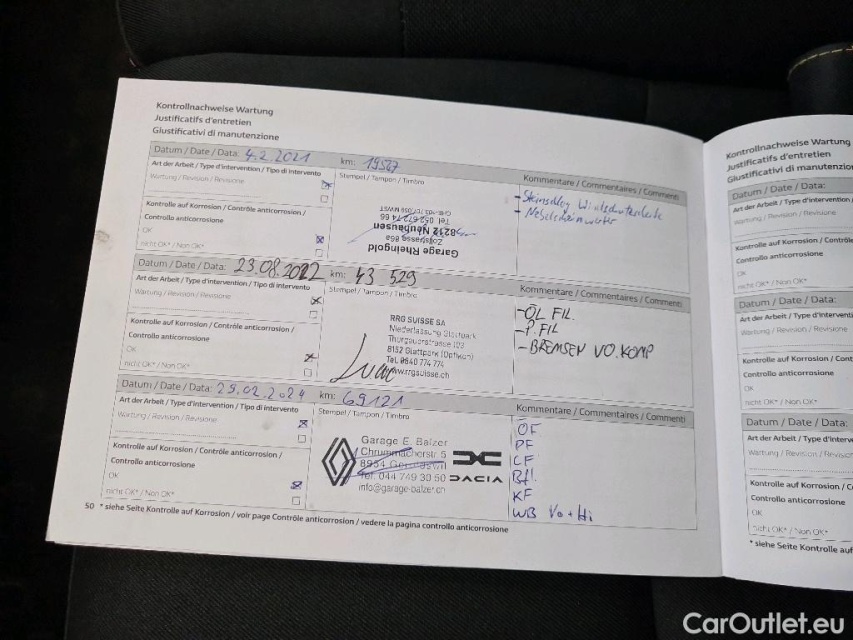 Kontrollnachweise Wartung
Justificatifs d'entretien
Giustificativi di manutenzione
Datum / Date / Data: 4.2.2021 km: 19567
Art der Arbeit / Type d'intervention / Tipo di intervento
Stempel / Tampon / Timbro
Kommentare / Commentaires / Commenti
Wartung / Revision / Revisione
- Steinschlag
- Nebelscheinwerfer
Kontrolle auf Korrosion / Contrôle anticorrosion /
Controllo anticorrosione
OK
nicht OK* / Non OK*
Garage Rheingold
Zollstrasse 86a
8212 Neuhausen
Tel. 052 672 74 66
Datum / Date / Data: 23.08.2022 km: 43 529
Art der Arbeit / Type d'intervention / Tipo di intervento
Stempel / Tampon / Timbro
Kommentare / Commentaires / Commenti
Wartung / Revision / Revisione
- ÖL FIL.
- P. FIL
- BREMSEN VO. KOMP
Kontrolle auf Korrosion / Contrôle anticorrosion /
Controllo anticorrosione
OK
nicht OK* / Non OK*
RRG SUISSE SA
Niederlassung Glattpark
Thurgauerstrasse
8152 Glattpark (Opfikon)
Tel. 0840 774 774
www.rrgsuisse.ch
Datum / Date / Data: 29.02.2024 km: 69121
Art der Arbeit / Type d'intervention / Tipo di intervento
Stempel / Tampon / Timbro
Kommentare / Commentaires / Commenti
Wartung / Revision / Revisione
OF
PF
CF
Bfl.
KF
WB Vo + Hi
Kontrolle auf Korrosion / Contrôle anticorrosion /
Controllo anticorrosione
OK
nicht OK* / Non OK*
Garage E. Balzer
Chrummacherstr. 5
8954 Geroldswil
Tel. 044 749 30 50
info@garage-balzer.ch
DACIA
50 * siehe Seite Kontrolle auf Korrosion / voir page Contrôle anticorrosion / vedere la pagina controllo anticorrosione
Kontrollnachweise Wartung
Justificatifs d'entretien
Giustificativi di manutenzione
Datum / Date / Data:
Art der Arbeit / Type d'intervention
Wartung / Revision / Revisione
Kontrolle auf Korrosion /
Controllo anticorrosione
OK
nicht OK* / Non OK*
Datum / Date / Data:
Art der Arbeit / Type d'intervention
Wartung / Revision / Revisione
Kontrolle auf Korrosion /
Controllo anticorrosione
OK
nicht OK* / Non OK*
Datum / Date / Data:
Art der Arbeit / Type
Wartung / Revision / Revisione
Kontrolle auf Korrosion /
Controllo anticorrosione
OK
nicht OK* / Non OK*
* siehe Seite Kontrolle auf
CarOutlet.eu